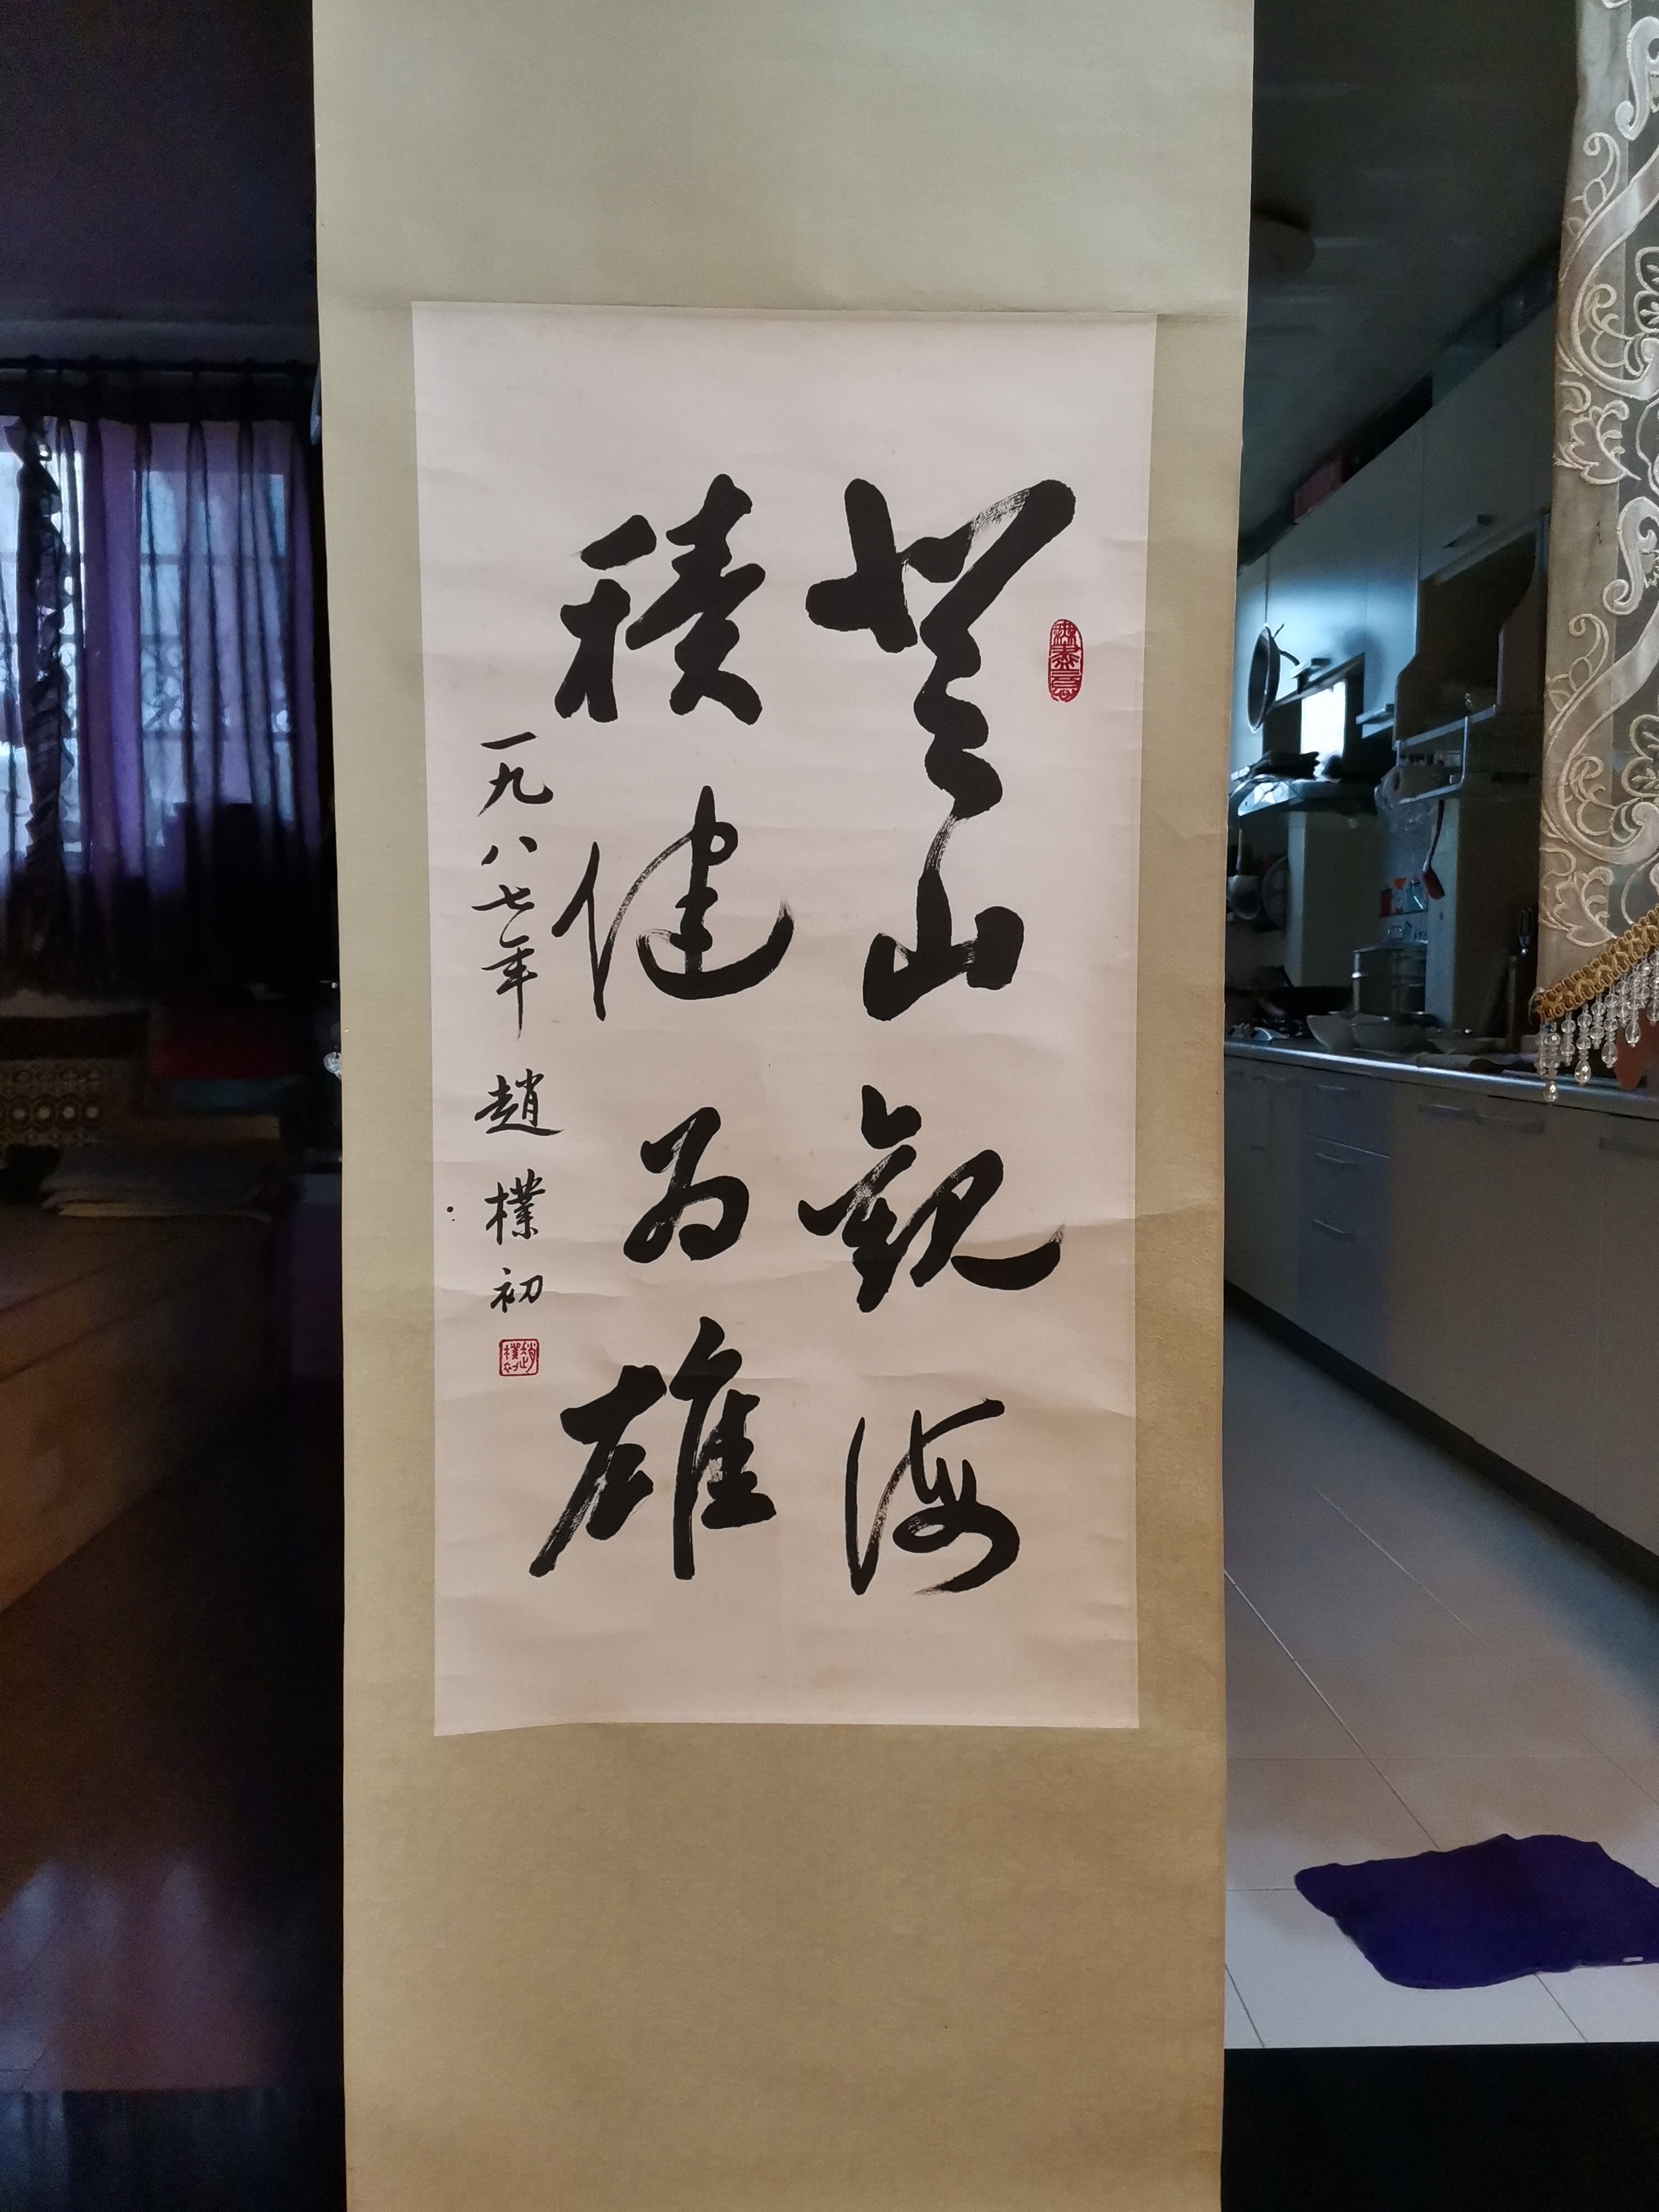 登山觀海
積健為雄
一九八七年 趙樸初
趙樸初